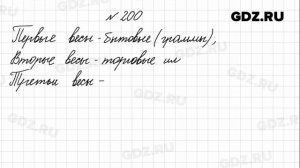 GDZ.RU
№ 200
Первые весы - бытовые (граммы),
Вторые весы - торговые ил
Третьи весы -
GDZ.RU